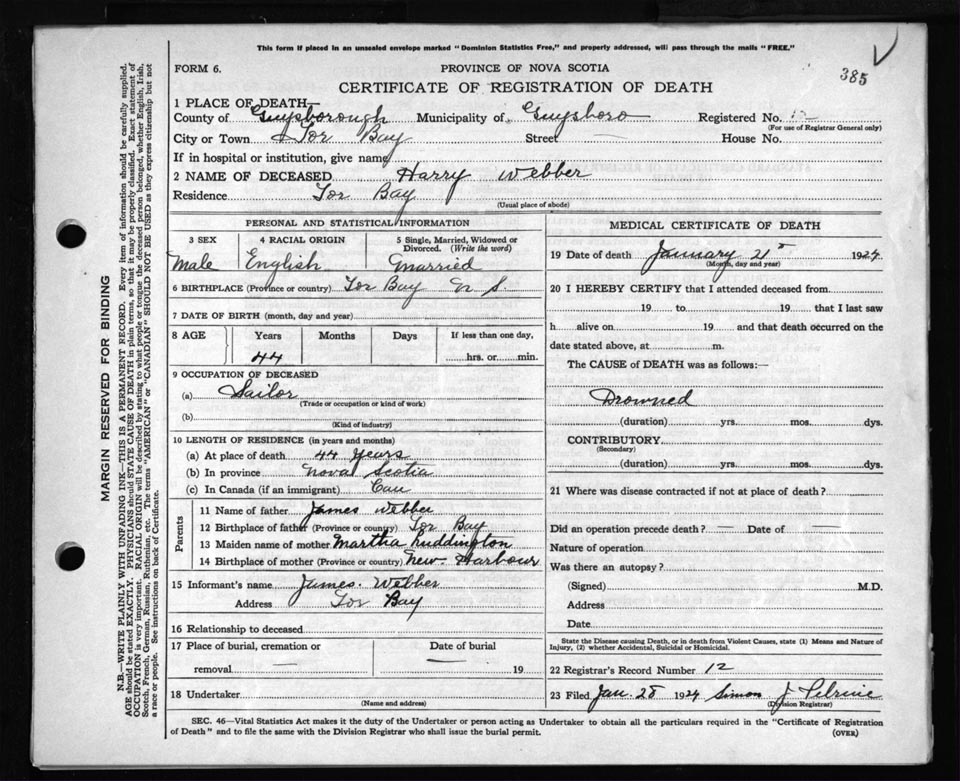 This form if placed in an unsealed envelope marked "Dominion Statistics Free," and properly addressed, will pass through the mails "FREE."
385
FORM 6.
PROVINCE OF NOVA SCOTIA
CERTIFICATE OF REGISTRATION OF DEATH
1 PLACE OF DEATH—
County of Guysborough Municipality of Guysboro Registered No. 12
(For use of Registrar General only)
City or Town Tor Bay Street — House No.
If in hospital or institution, give name
2 NAME OF DECEASED Harry Webber
Residence Tor Bay
(Usual place of abode)
PERSONAL AND STATISTICAL INFORMATION
3 SEX 4 RACIAL ORIGIN 5 Single, Married, Widowed or Divorced. (Write the word)
Male English Married
6 BIRTHPLACE (Province or country) Tor Bay N S.
7 DATE OF BIRTH (month, day and year)
8 AGE Years Months Days If less than one day,
44 hrs. or min.
9 OCCUPATION OF DECEASED
(a) Sailor
(Trade or occupation or kind of work)
(b)
(Kind of industry)
10 LENGTH OF RESIDENCE (in years and months)
(a) At place of death 44 Years
(b) In province Nova Scotia
(c) In Canada (if an immigrant) Can
Parents
11 Name of father James Webber
12 Birthplace of father (Province or country) Tor Bay
13 Maiden name of mother Martha Luddington
14 Birthplace of mother (Province or country) New Harbour
15 Informant's name James. Webber
Address Tor Bay
16 Relationship to deceased
17 Place of burial, cremation or removal — Date of burial — 19
18 Undertaker
(Name and address)
MEDICAL CERTIFICATE OF DEATH
19 Date of death January 21st 1924
(Month, day and year)
20 I HEREBY CERTIFY that I attended deceased from
19 to 19 that I last saw
h alive on 19 and that death occurred on the
date stated above, at m.
The CAUSE of DEATH was as follows:—
Drowned
(duration) yrs. mos. dys.
CONTRIBUTORY
(Secondary)
(duration) yrs. mos. dys.
21 Where was disease contracted if not at place of death?
Did an operation precede death? — Date of —
Nature of operation
Was there an autopsy?
(Signed) M.D.
Address
Date
State the Disease causing Death, or in death from Violent Causes, state (1) Means and Nature of
Injury, (2) whether Accidental, Suicidal or Homicidal.
22 Registrar's Record Number 12
23 Filed Jan. 28 1924 Simon J Pelrine
(Division Registrar)
SEC. 46—Vital Statistics Act makes it the duty of the Undertaker or person acting as Undertaker to obtain all the particulars required in the "Certificate of Registration
of Death" and to file the same with the Division Registrar who shall issue the burial permit.
(OVER)
MARGIN RESERVED FOR BINDING
N.B.—WRITE PLAINLY WITH UNFADING INK—THIS IS A PERMANENT RECORD. Every item of information should be carefully supplied.
AGE should be stated EXACTLY. PHYSICIANS should STATE CAUSE OF DEATH in plain terms, so that it may be properly classified. Exact statement of
OCCUPATION is very important. RACIAL ORIGIN will be described by stating to what people or tongue the deceased person belonged, whether English, Irish,
Scotch, French, German, Russian, Ruthenian, etc. The terms "AMERICAN" or "CANADIAN" SHOULD NOT BE USED as they express citizenship but not
a race or people. See instructions on back of Certificate.